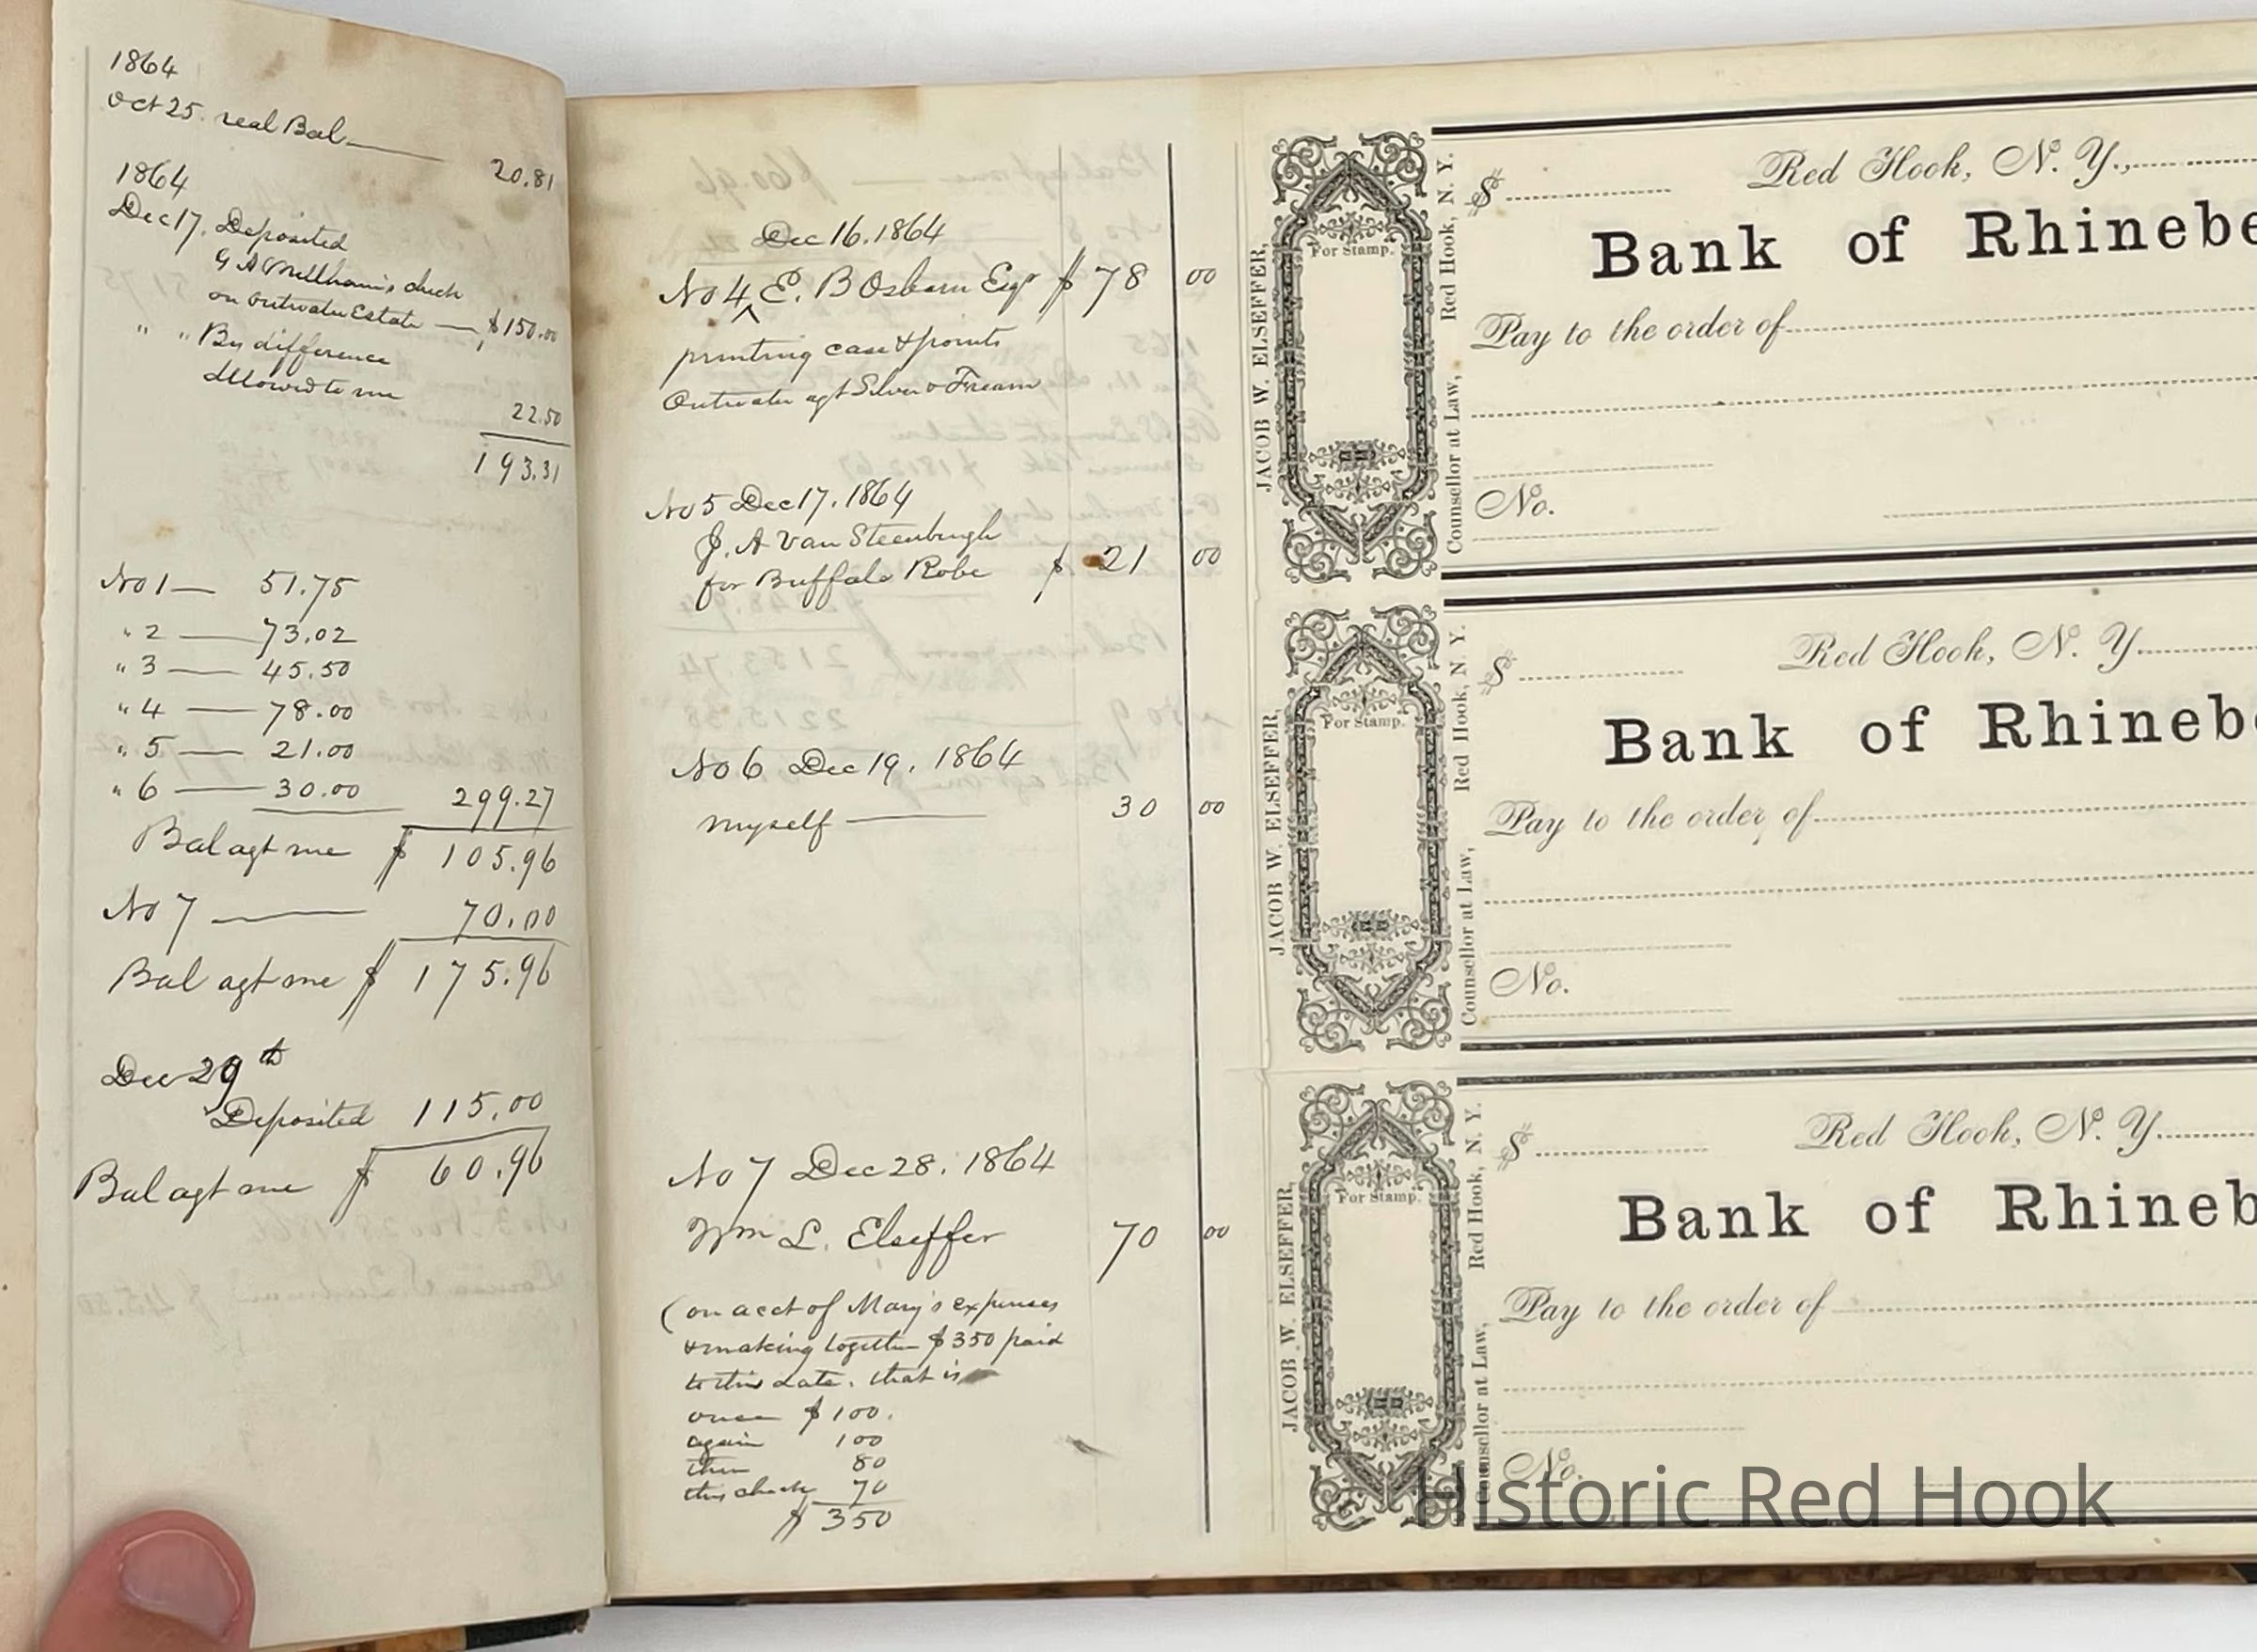 1864
Oct 25. real Bal 20.81
1864
Dec 17. Deposited
G A check
on Outwater Estate — $150.00
" " By difference
allowed to me
22.50
193.31
No 1 — 51.75
" 2 — 73.02
" 3 — 45.50
" 4 — 78.00
" 5 — 21.00
" 6 — 30.00 299.27
Bal agt me $ 105.96
No 7 — 70.00
Bal agt me $ 175.96
Dec 29th
Deposited 115.00
Bal agt me $ 60.96
Dec 16. 1864
No 4 ^ E. B Osborn Esqr $ 78 00
printing case & points
Outwater agt Silver & Fream
No 5 Dec 17. 1864
J. A Van Steenburgh
for Buffalo Robe $ 21 00
No 6 Dec 19. 1864
myself — 30 00
No 7 Dec 28. 1864
Wm L. Elseffer 70 00
(on acct of Mary's expenses
& making together $350 paid
to this date. that is
once $100.
again 100
then 80
this check 70
$ 350
JACOB W. ELSEFFER,
For Stamp.
Counsellor at Law, Red Hook, N. Y.
$ Red Hook, N. Y.,
Bank of Rhinebe
Pay to the order of
No.
JACOB W. ELSEFFER,
For Stamp.
Counsellor at Law, Red Hook, N. Y.
$ Red Hook, N. Y.
Bank of Rhinebe
Pay to the order of
No.
JACOB W. ELSEFFER,
For Stamp.
Counsellor at Law, Red Hook, N. Y.
$ Red Hook, N. Y.
Bank of Rhineb
Pay to the order of
No.
Historic Red Hook